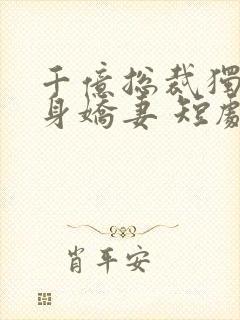 千億總裁獨
身嬌妻 短劇
肖平安